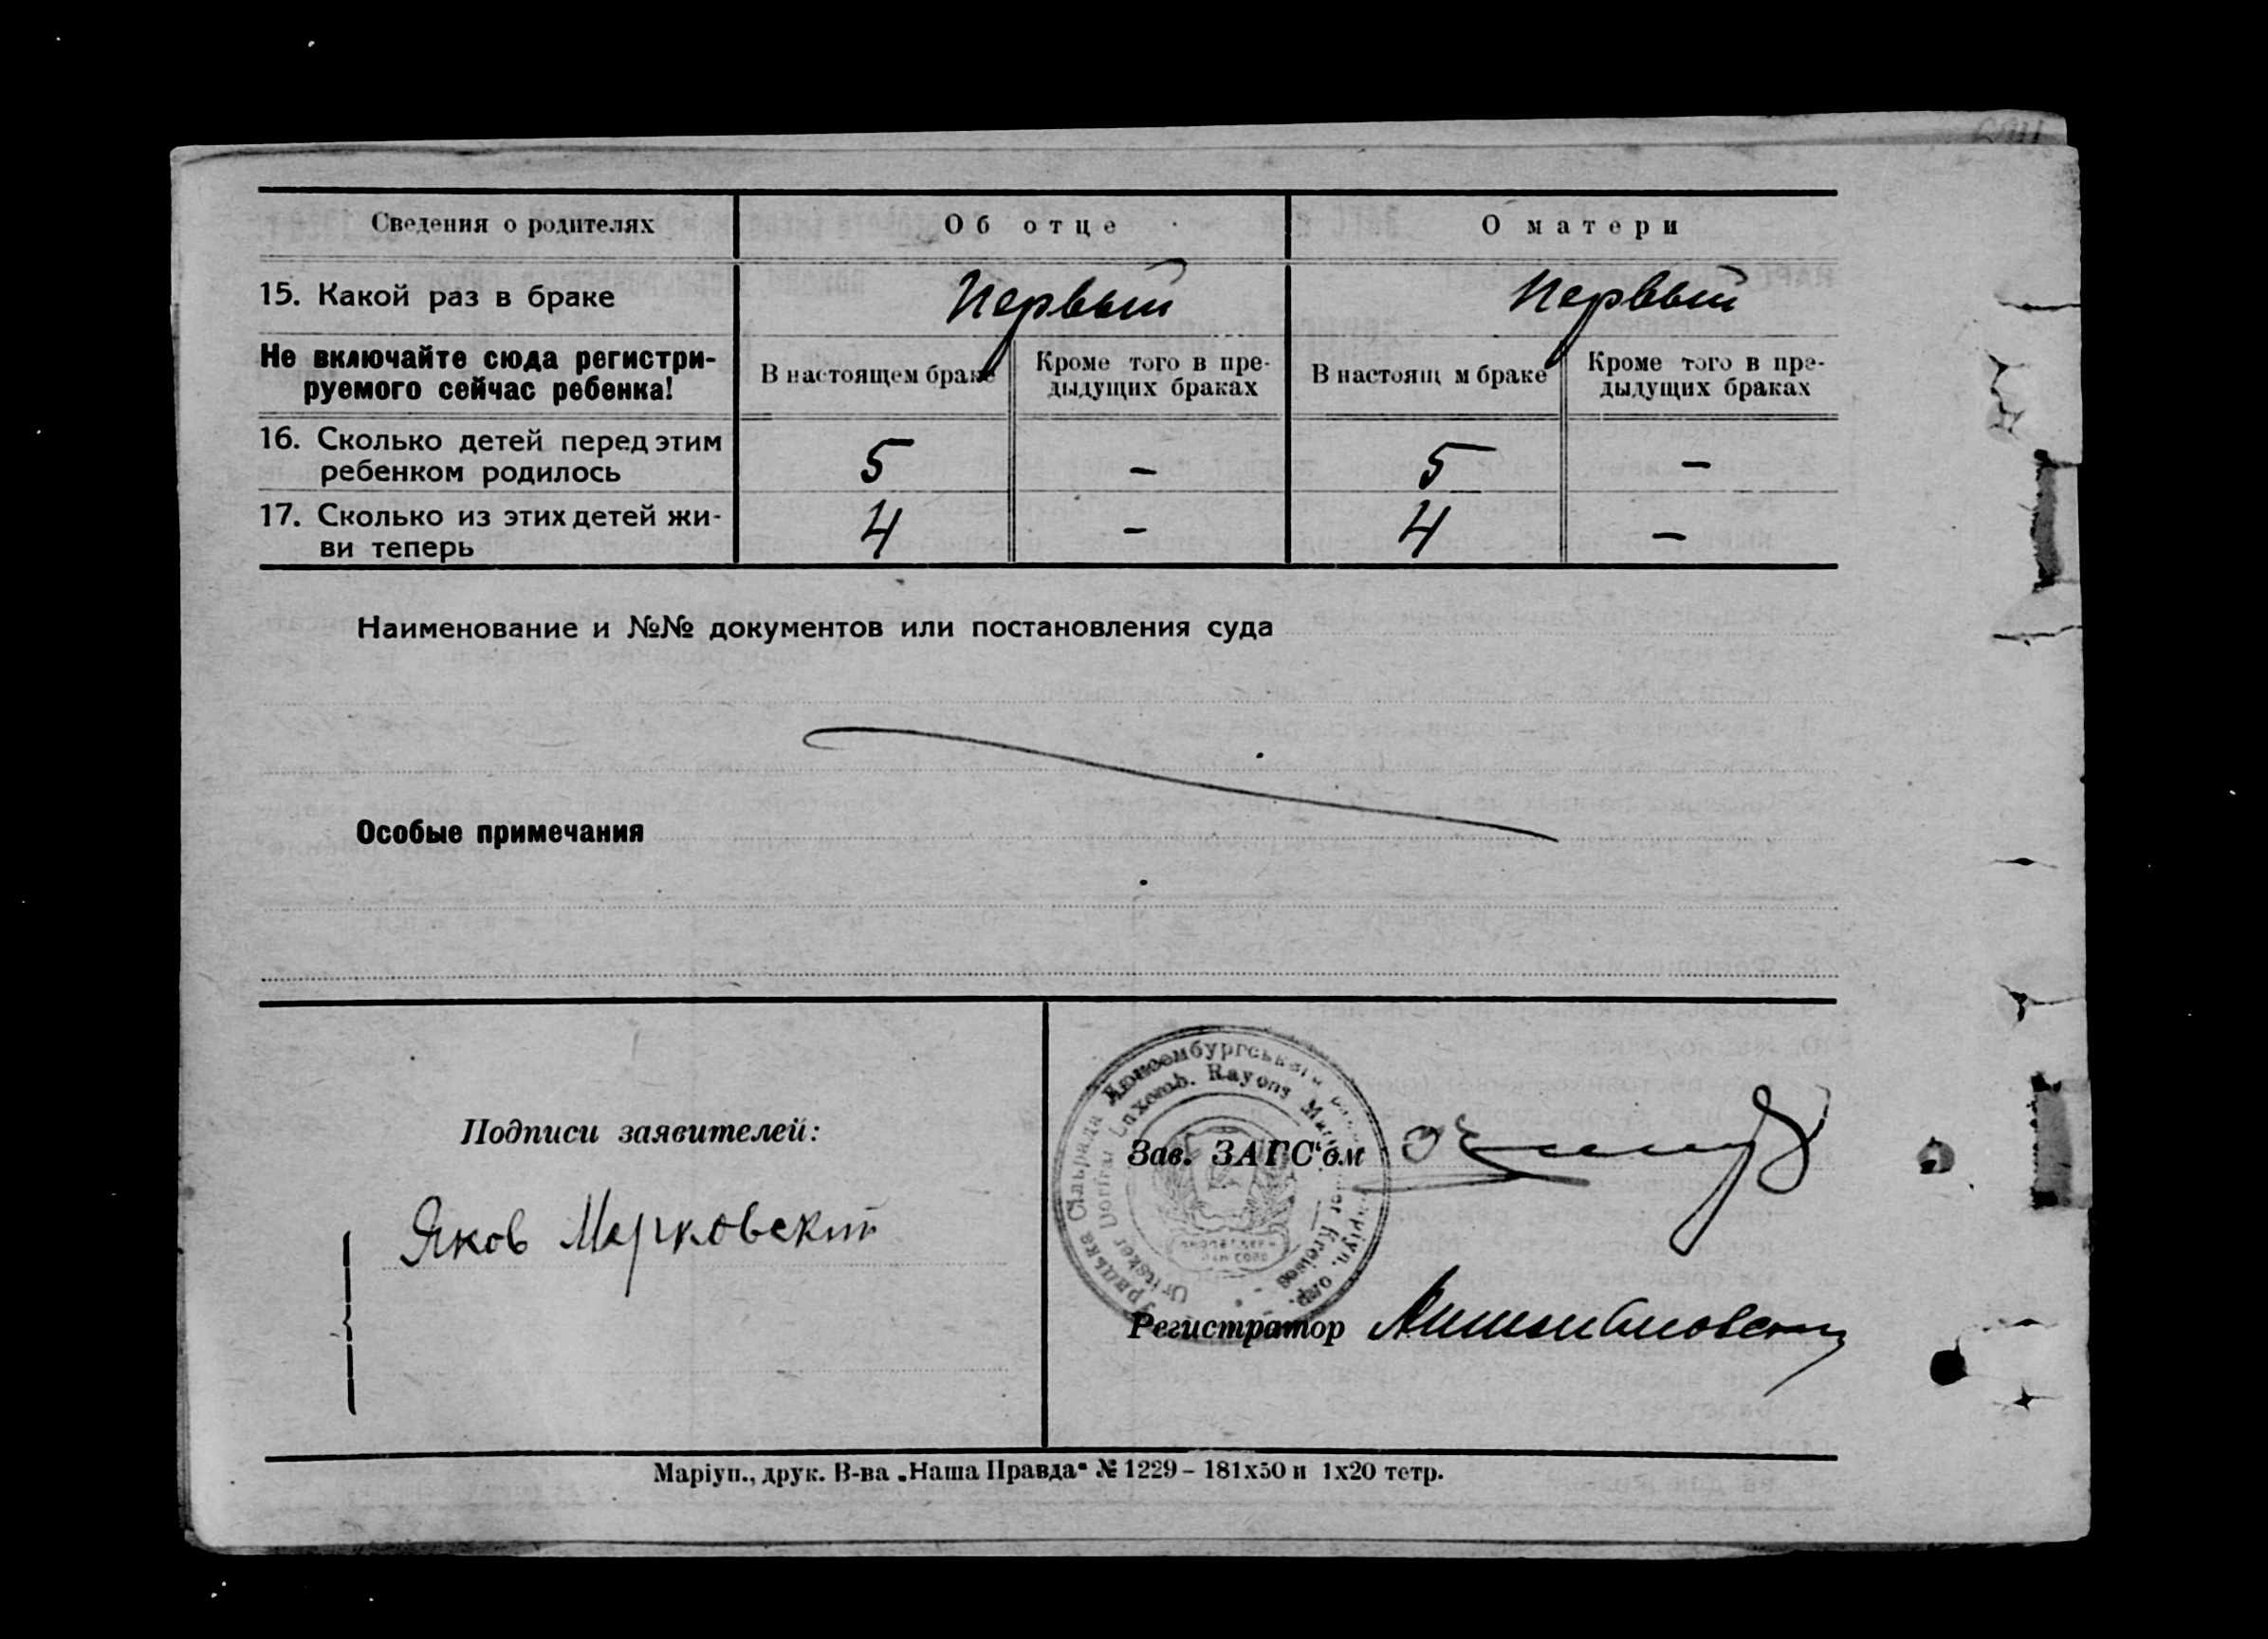 Сведения о родителях
Об отце
О матери
15. Какой раз в браке
Первый
Первый
Не включайте сюда регистри-
руемого сейчас ребенка!
В настоящем браке
Кроме того в пре-
дыдущих браках
В настоящ м браке
Кроме того в пре-
дыдущих браках
16. Сколько детей перед этим
ребенком родилось
5
–
5
–
17. Сколько из этих детей жи-
ви теперь
4
–
4
–
Наименование и №№ документов или постановления суда
Особые примечания
Подписи заявителей:
Яков Марковский
Люксембургського
Сільрада
Rayons
Зав. ЗАГС'ом
Регистратор
Маріуп., друк. В-ва „Наша Правда" № 1229 – 181х50 и 1х20 тетр.